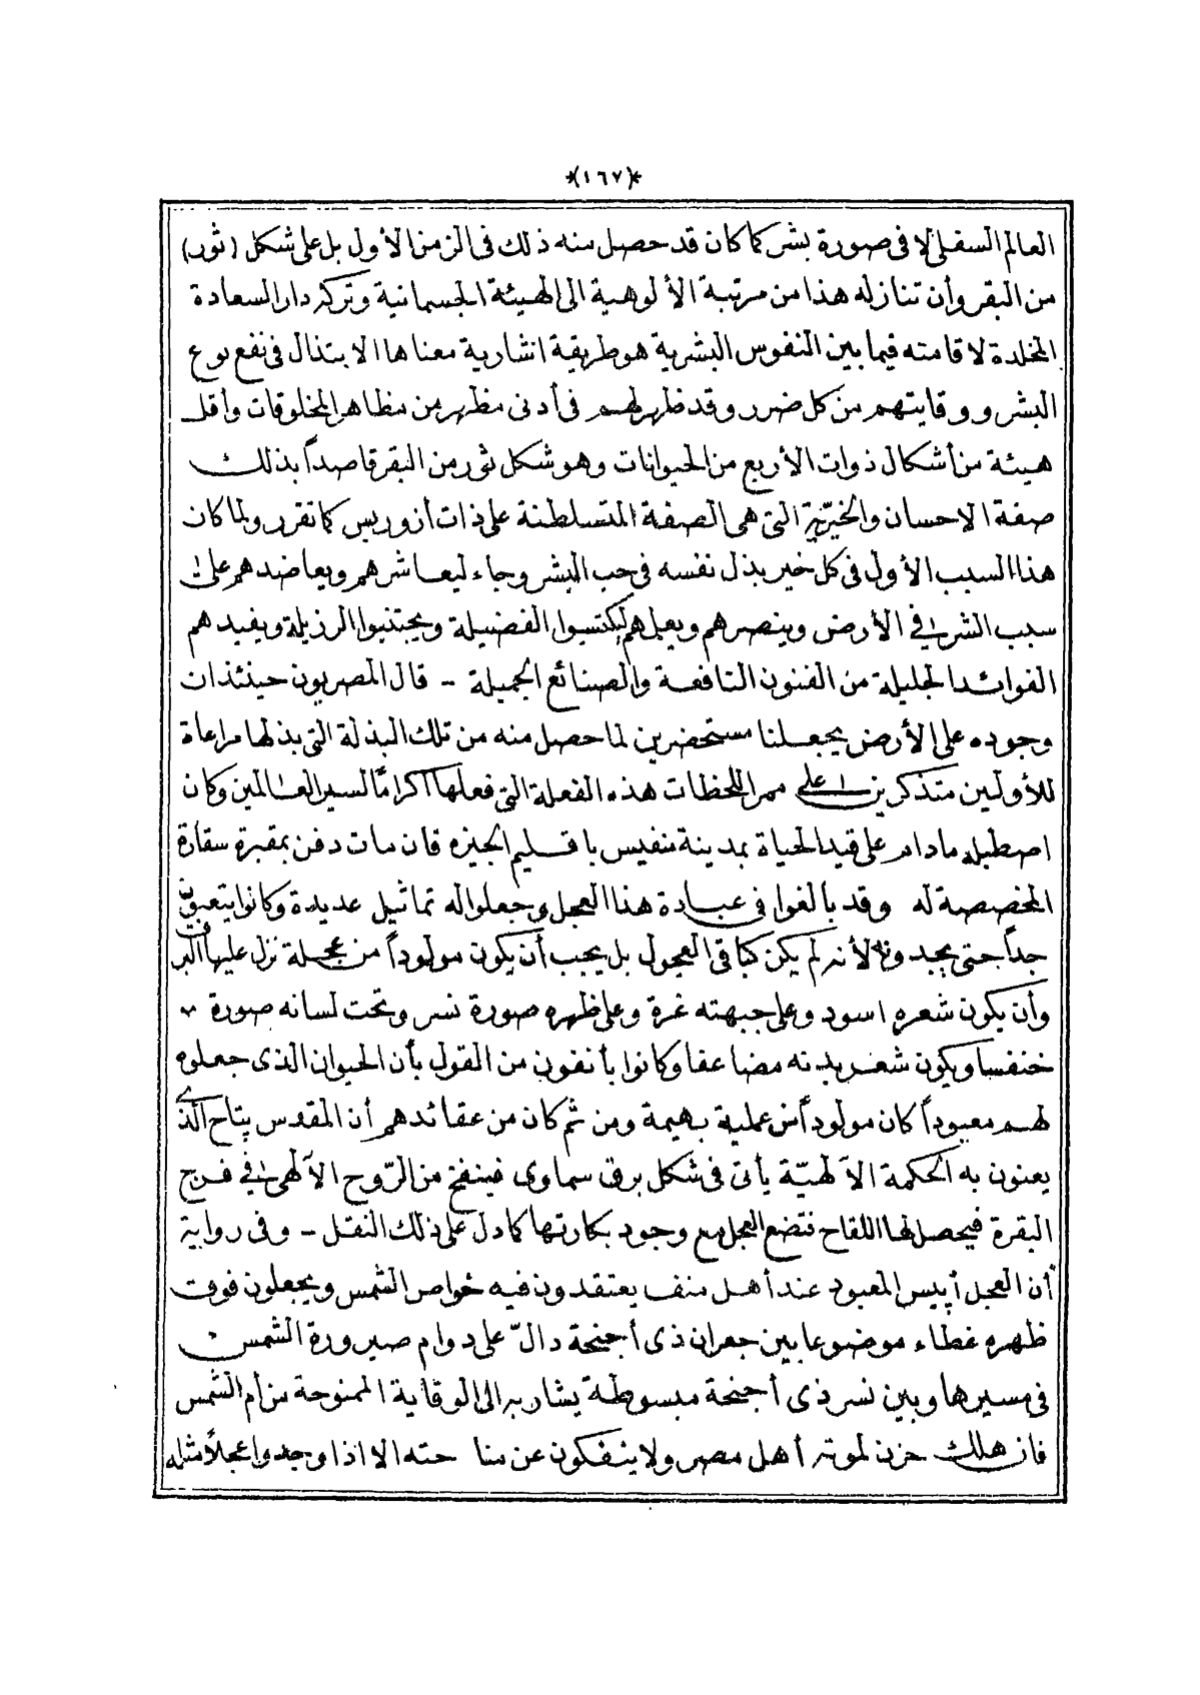 *(١٦٧)*
العالم السفلى لا فى صورة بشر كما كان قد حصل منه ذلك فى الزمن الأول بل على شكل (ثور)
من البقر وأن تنازله هذا من مرتبة الألوهية الى الهيئة الجسمانية وتركه دار السعادة
المخلدة لاقامته فيما بين النفوس البشرية هو طريقة اشارية معناها الابتذال فى نفع نوع
البشر ووقايتهم من كل ضرر وقد ظهر لهم فى أدنى مظهر من مظاهر المخلوقات وأقل
هيئة من أشكال ذوات الأربع من الحيوانات وهو شكل ثور من البقر قاصداً بذلك
صفة الاحسان والخيّريّة التى هى الصفة المتسلطنة على ذات أزوريس كما تقرر ولما كان
هذا السبب الأول فى كل خير بذل نفسه فى حب البشر وجاء ليعاشرهم ويعاضدهم على
سبب الشر فى الأرض وينصرهم ويعلمهم ليكتسبوا الفضيلة ويجتنبوا الرزيلة ويفيدهم
الفوائد الجليلة من الفنون النافعة والصنائع الجميلة - قال المصريون حينئذ ان
وجوده على الأرض يجعلنا مستحضرين لما حصل منه من تلك البذلة التى بذلها مراعاة
للأولين متذكرين على ممر اللحظات هذه الفعلة التى فعلها اكراما لسير العالمين وكان
اصطبله مادام على قيد الحياة بمدينة منفيس باقليم الجيزه فان مات دفن بمقبرة سقارة
المخصصة له وقد بالغوا فى عبادة هذا العجل وجعلوا له تماثيل عديدة وكانوا يتعبون
جداً حتى يجدونه لأنه لم يكن كباقى العجول بل يجب أن يكون مولوداً من عجلة نزل عليها البرق
وأن يكون شعره اسود وعلى جبهته غرة وعلى ظهره صورة نسر وتحت لسانه صورة
خنفسا ويكون شعر بدنه مضاعفا وكانوا يأنفون من القول بأن الحيوان الذى جعلوه
لهم معبوداً كان مولوداً من عملية بهيمة ومن ثم كان من عقائدهم أن المقدس پتاح الذى
يعنون به الحكمة الآلهيّة يأتى فى شكل برق سماوى فينفخ من الرّوح الآلهى فى فرج
البقرة فيحصل لها اللقاح فتضع العجل مع وجود بكارتها كما دل على ذلك النقل - وفى رواية
أن العجل أپيس المعبود عند أهل منف يعتقدون فيه خواص الشمس ويجعلون فوق
ظهره غطاء موضوعا بين جعران ذى أجنحة دالّ على دوام صيرورة الشمس
فى مسيرها وبين نسر ذى أجنحة مبسوطة يشار به الى الوقاية الممنوحة من أم الشمس
فان هلك حزن لموته أهل مصر ولا ينفكون عن مناحته الا اذا وجدوا عجلاً مثله